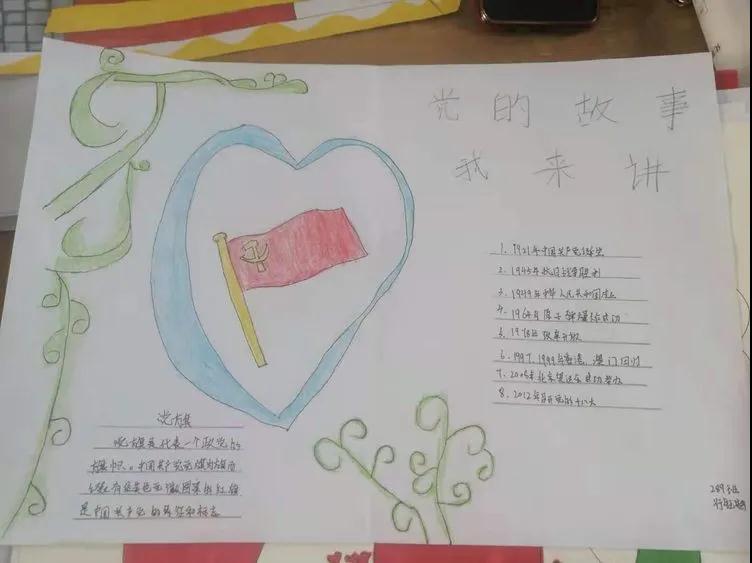 党的故事
我来讲
1. 1921年中国共产党诞生
2. 1945年抗日战争胜利
3. 1949年中华人民共和国成立
4. 1964年原子弹爆炸成功
5. 1978年改革开放
6. 1997,1999年香港,澳门回归
7. 2008年北京奥运会成功举办
8. 2012年召开党的十八大
党旗
党旗是代表一个政党的
旗帜。中国共产党党旗为旗面
缀有金黄色党徽图案的红旗
是中国共产党的象征和标志
289班